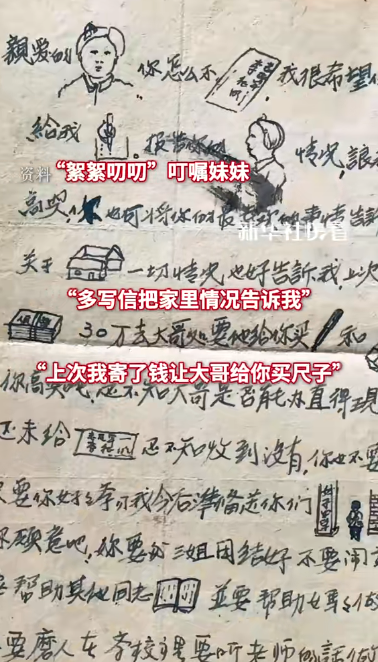 親爱的 你怎么不 我很希望你
給我 报告你的 情况，
资料
“絮絮叨叨”叮嘱妹妹
高兴， 也可将你的 事情告訴
新华社
关于 一切情况也好告訴我，上次
“多写信把家里情况告诉我”
30万去大哥如要他給你买 和
“上次我寄了钱让大哥给你买尺子”
你高兴吧，还不知大哥是否能办
还未给 还不知收到没有，你也不要
要你好好学习我今后準备送你们
愿意吧，你要和三姐团结好不要闹
帮助其他同志 並要帮助
要磨人在学校里要听老师的話